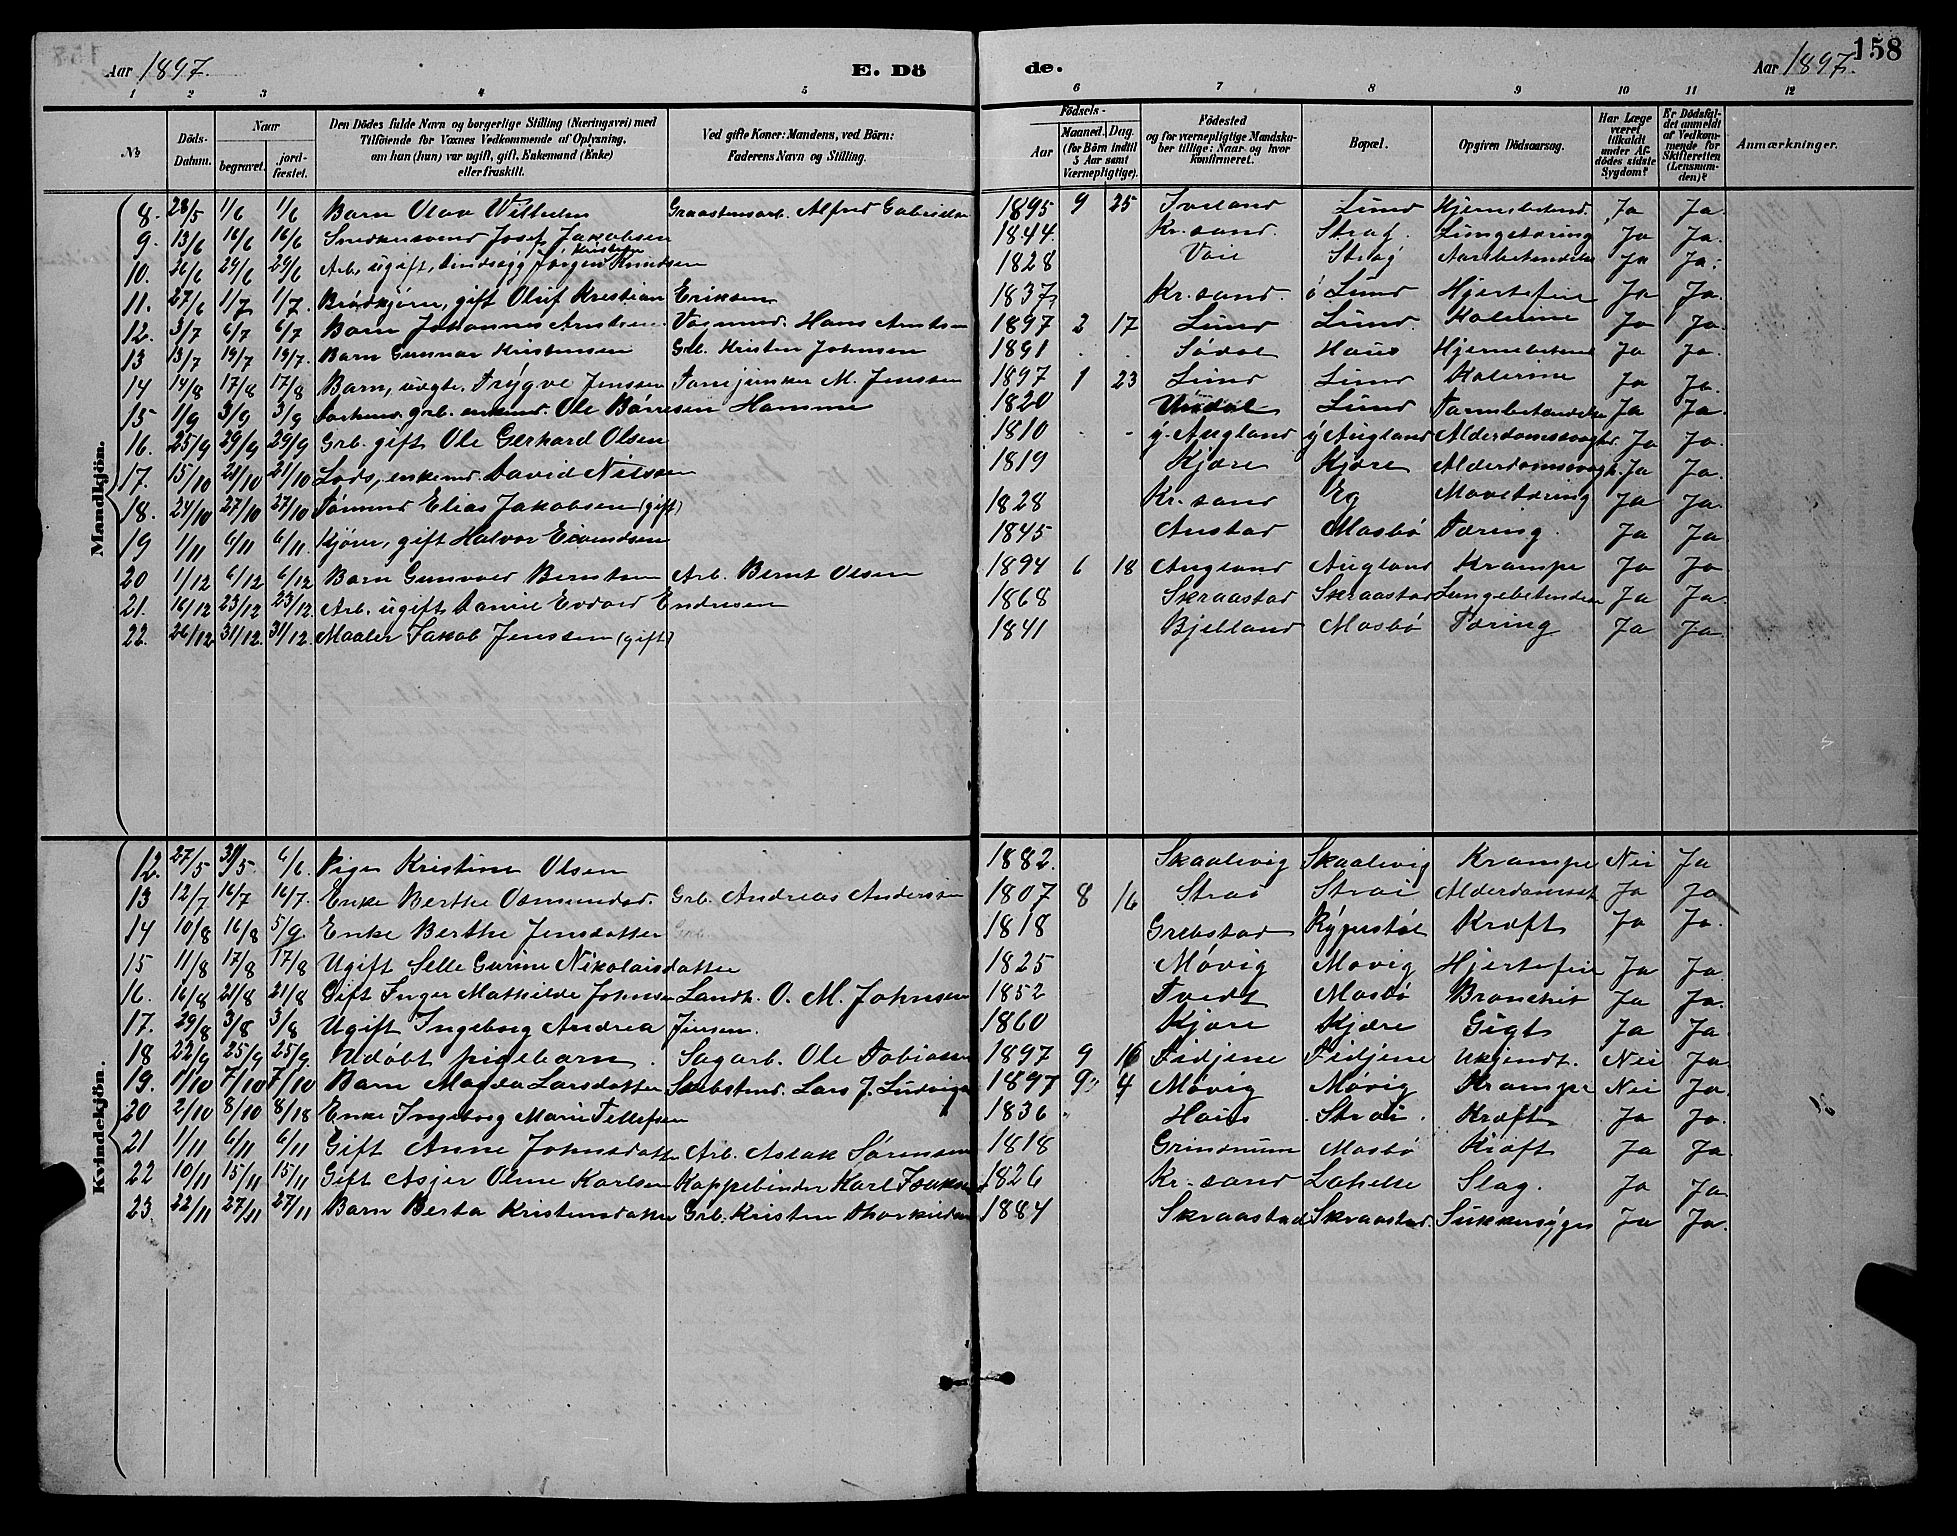 158
Aar 1897. E. Dö de. Aar 1897.
1 2 3 4 5 6 7 8 9 10 11 12
№ Döds-Datum. Naar begravet. jordfæstet. Den Dödes fulde Navn og borgerlige Stilling (Næringsvei) med Tilföiende for Voxnes Vedkommende af Oplysning, om han (hun) var ugift, gift, Enkemand (Enke) eller fraskilt. Ved gifte Koner: Mandens, ved Börn: Faderens Navn og Stilling. Födsels- Aar Maaned. Dag. (for Börn indtil 5 Aar samt Værnepligtige). Födested og for værnepligtige Mandskaber tillige: Naar og hvor konfirmeret. Bopæl. Opgiven Dödsaarsag. Har Læge været tilkaldt under Afdödes sidste Sygdom? Er Dödsfaldet anmeldt af Vedkommende for Skifteretten (Lensmanden)? Anmærkninger.
Mandkjön.
8. 28/5 1/6 1/6 Barn Olav Wilhelm Alfred 1895 9 25 Iveland Lund Ja Ja.
9. 13/6 16/6 16/6 Snedkersvend Josef Jakobsen 1844. Kr.sand. Strai. Lungetæring Ja Ja.
10. 26/6 29/6 29/6 Arb, ugift, Jørgen Kristian Knudsen 1828 Voie Strai Ja Ja.
11. 27/6 1/7 1/7. gift Oluf Kristian Eriksen 1837 Kr.sand. Lund Hjertefeil Ja Ja.
12. 3/7 6/7 6/7 Barn Johannes Arntsen. Hans Arntsen 1897 2 17 Lund Lund. Kolerine Ja Ja.
13 13/7 19/7 19/7. Barn Gunnar Kristensen Grb. Kristen Johnsen 1891 Sødal Haus Ja Ja.
14 14/8 17/8 17/8 Barn, uægte, Trygve Jenssen M. Jenssen 1897 1 23 Lund Lund Kolerine Ja Ja.
15 1/9 3/9 3/9 grb. enkemd. Ole Børresen Hamme 1820 Lund Tarmbetændelse Ja Ja.
16. 25/9 29/9 29/9 Grb. gift Ole Gerhard Olsen 1810 y. Augland y. Augland Ja Ja.
17. 15/10 21/10 21/10 Lods, enkemd. David Nilssen 1819 Kjære Kjære Ja Ja.
18. 24/10 27/10 27/10 Tømmd Elias Jakobsen (gift) 1828 Kr.sand Eg Mavetæring Ja Ja.
19 1/11 6/11 6/11 gift Halvor Eivendsen 1845 Austad Mosbø Tæring. Ja Ja
20 1/12 6/12 6/12 Barn Gunvald Berntsen Arb. Bernt Olsen 1894 6 18 Augland Augland Krampe Ja Ja
21. 16/12 23/12 23/12. Arb. ugift Daniel Edvard Endresen 1868 Skraastad Skraastad Lungebetændelse Ja Ja.
22. 26/12 31/12. 31/12. Maaler Jakob Jenssen (gift) 1841 Bjelland Mosbø Tæring Ja Ja.
Kvindekjön.
12. 27/5 31/5. 6/6. Pige Kristine Olsen 1882. Skaalevig Skaalevig Krampe Nei Ja
13 12/7 16/7 16/7. Enke Berthe Osmundsd. Grb. Andreas Andersen 1807 8 16 Strai Strai Ja Ja
14 10/8 16/8 5/9. Enke Berthe Jensdatter 1818 Grebstad Kræft Ja Ja.
15 11/8 17/8 17/8 Ugift Selle Gurine Nikolaisdatter 1825 Møvig Møvig Hjertefeil Ja Ja.
16. 16/8 21/8 21/8 Gift Inger Mathilde Johnsen Landh. O. M. Johnsen 1852 Tvedt Mosbø Bronchit Ja Ja.
17. 29/8 3/8 3/8 Ugift Ingeborg Andrea Jensen. 1860 Kjære Kjære Gigt Ja Ja
18 22/9 25/9 25/9. Udøbt pigebarn. Sagarb. Ole Tobiassen 1897 9 16 Fidjene Fidjene Ukjendt. Nei Ja
19. 1/10 7/10 7/10 Barn Magda Larsdatter Lars J. 1897 9 4 Møvig Møvig Krampe Nei Ja.
20 2/10 8/10 8/18 Enke Ingeborg Marie Tellefsen 1836 Haus Strai. Kræft Ja Ja.
21 1/11 6/11 6/11 Gift Anne Johnsdatter Arb. Aslak Sørensen 1818 Mosbø Kræft Ja Ja.
22 10/11 15/11 15/11 Gift Asjer Oline Karlsen Karl 1826 Kr.sand Lahelle Slag. Ja Ja
23. 22/11 27/11 27/11 Barn Berta Kristensdatter Grb. Kristen Thorkildsen 1884 Skraastad Skraastad. Sukkersyge Ja Ja.